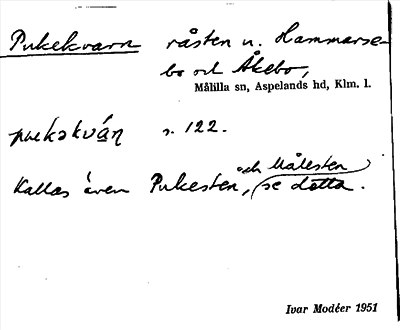 Pukekvarn råsten u. Hammarse-
bo och Åkebo,
Målilla sn, Aspelands hd, Klm. l.
pukəkván s. 122.
Kallas även Pukesten, och Målesten, se detta.
Ivar Modéer 1951